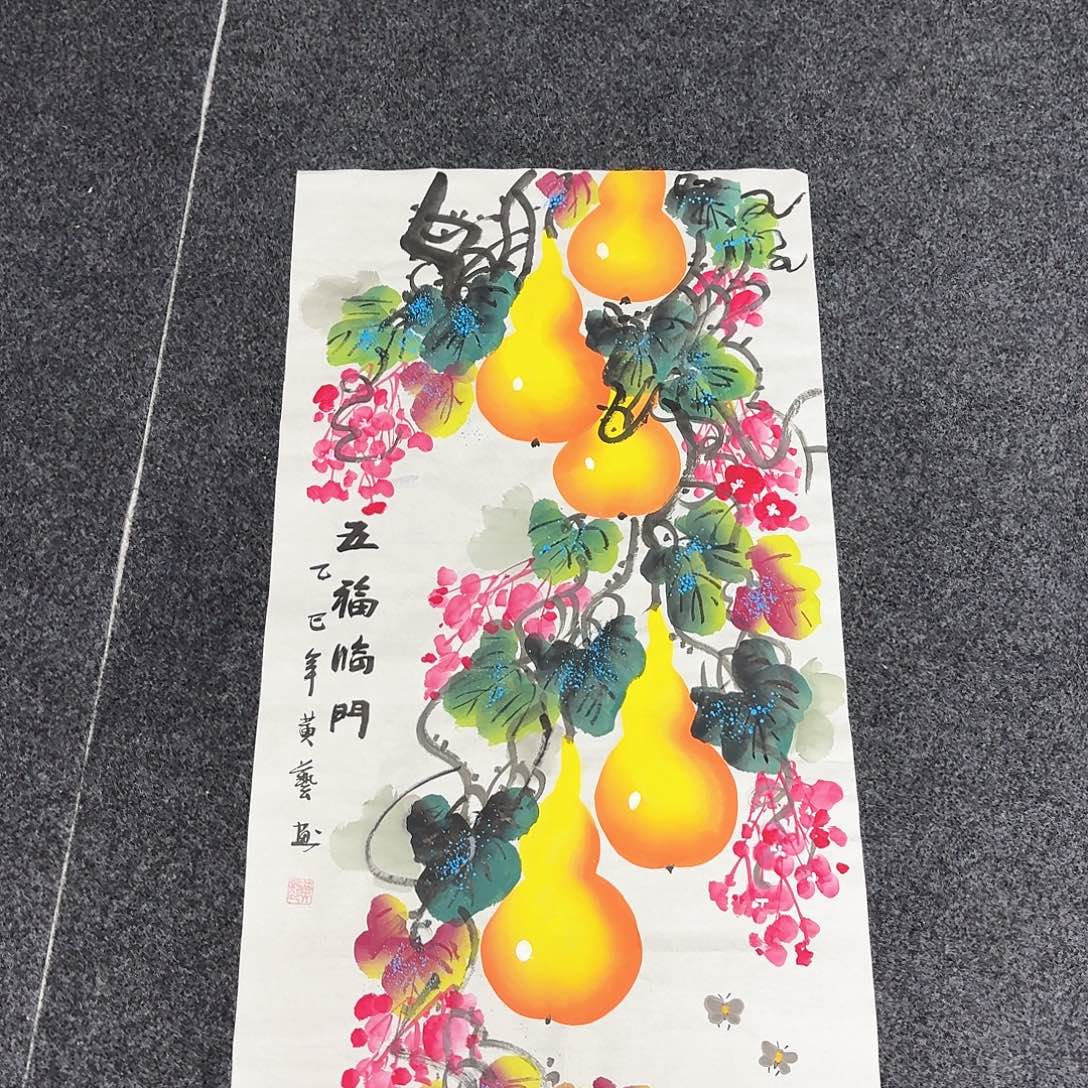 五福临門
乙巳年黄藝画